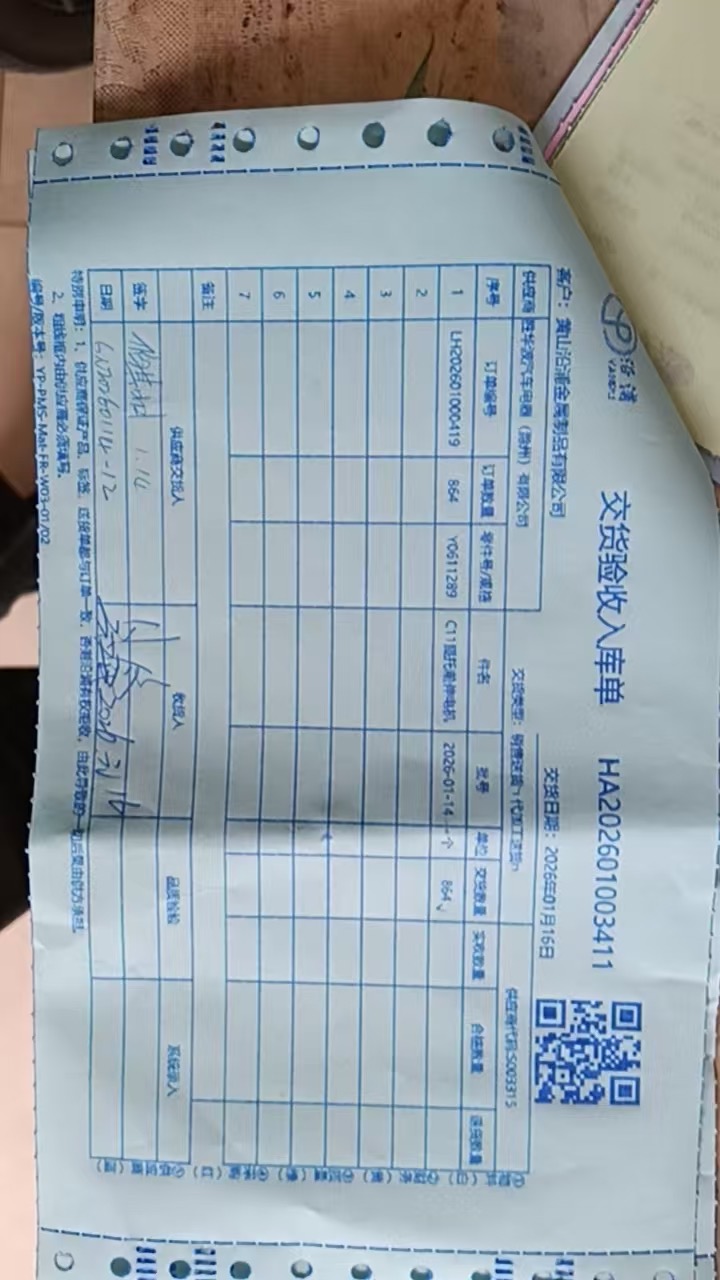 沿浦
YANPU
交货验收入库单 HA202601003411
客户：黄山沿浦金属制品有限公司 交货日期：2026年01月16日
供应商 胜华波汽车电器（滁州）有限公司 交货类型：销售送货 代加工送货 供应商代码 S003315
序号 订单编号 订单数量 零件号/规格 件名 批号 单位 交货数量 实收数量 合格数量 退货数量
1 LH202601000419 864 Y0611289 2026-01-14 个 864
2
3
4
5
6
7
备注
供应商交货人 收货人 品质检验 系统录入
签字 1.14
日期
特别申明：1、供应商保证产品、标签、送货单都与订单一致，否则沿浦有权拒收，由此导致的一切后果由供方承担。
2、粗线框内由供应商必须填写。
编号/版本号：YP-PMS-Mat-FR-W03-01/02